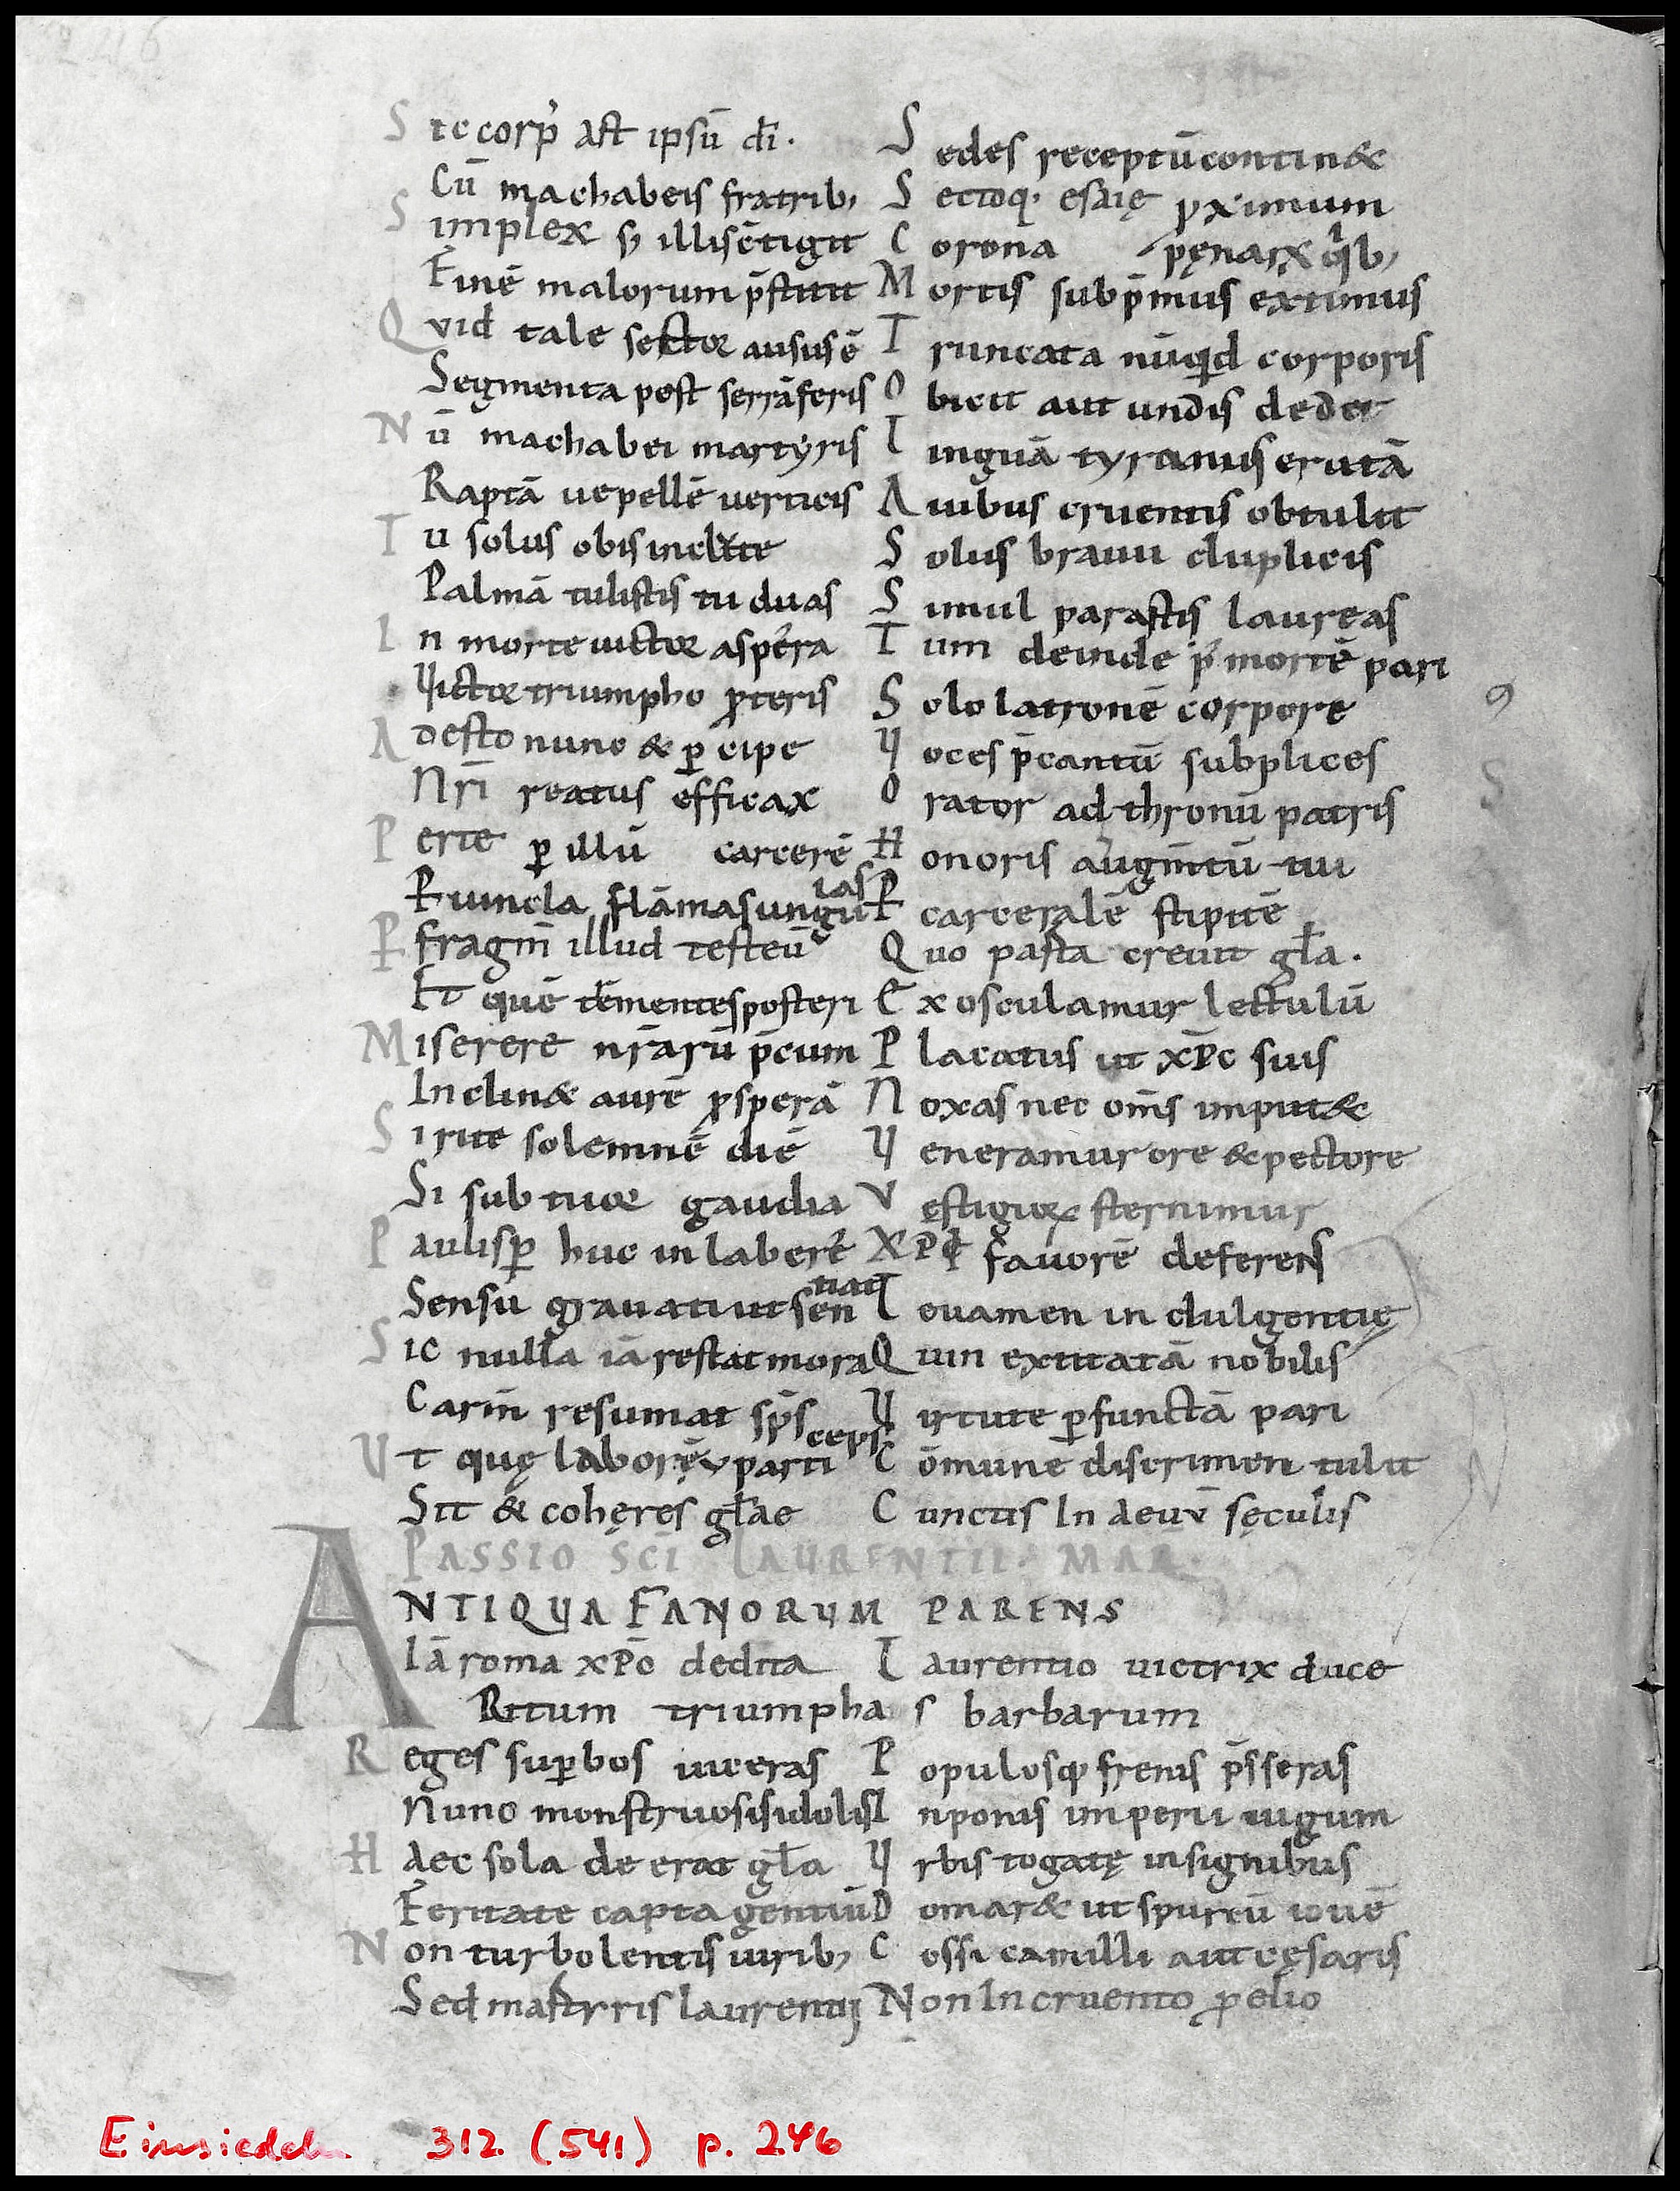 246
Sic corp̄ ast ipsū dī. Sedes receptū contin&
Cū machabeis fratrib; Sectoq. esaię pximum
Simplex s; illis ctigit Corona pęnarꝝ qib;
Finē malorum p̄stitit Mortis sub p̄mus extimus
Quid tale sector ausus ē Truncata nūquid corporis
Segmenta post serrā feris Obiecit aut undis dedit
Nū machabei martyris Linguā tyrannus erutā
Raptā ue pellē uerticis Auibus cruentis obtulit
Tu solus o bis inclyte Solus brauii duplicis
Palmā tulistis tu duas Simul parastis laureas
In morte uictor aspera Tum deinde p' mortē pari
Victor triumpho ꝓteris Solo latronē corpore
Adesto nunc & ꝑcipe Voces p̄cantū subplices
Nr̄i reatus efficax Orator ad thronū patris
Per te ꝑ illū carcerē Honoris augm̄tū tui
Per uincla flāmas ungulas Per carceralē stipitē
Per fragm̄ illud testeū Quo pasta creuit gl̄a.
Et quē trementes posteri Exosculamur lectulū
Miserere nr̄arū p̄cum Placatus ut xp̄c suis
Inclin& aurē ꝓsperā Noxas nec om̄s imput&
Si rite solemnē diē Veneramur ore & pectore
Si sub tuor gaudia Vestigiorꝝ sternimur
Paulisꝑ huc inlabere Xp̄i fauorē deferens
Sensu grauati ut sentiat Leuamen indulgentię
Sic nulla iā restat mora Quin excitatā nobilis
Carm̄ resumat sp̄s Virtute ꝑfunctā pari
Vt quę laborē particeps Cōmune discrimen tulit
Sit & coheres gl̄ae Cunctis In aeuū sęculis
PASSIO SC̄I LAURENTII. MAR.
ANTIQUA FANORUM PARENS
Iā roma xp̄o dedita Laurentio uictrix duce
Ritum triumphas barbarum
Reges suꝑbos uiceras Populosq; frenis p̄sseras
Nunc monstruosis idolis Inponis imperii iugum
Haec sola deerat gl̄a Vrbis togatę insignibus
Feritate capta gentiū Domar& ut spurcū iouē
Non turbolentis uirib; Cossi camilli aut cęsaris
Sed martyris laurentii Non Incruento ꝓelio
Einsiedeln 312 (541) p. 246